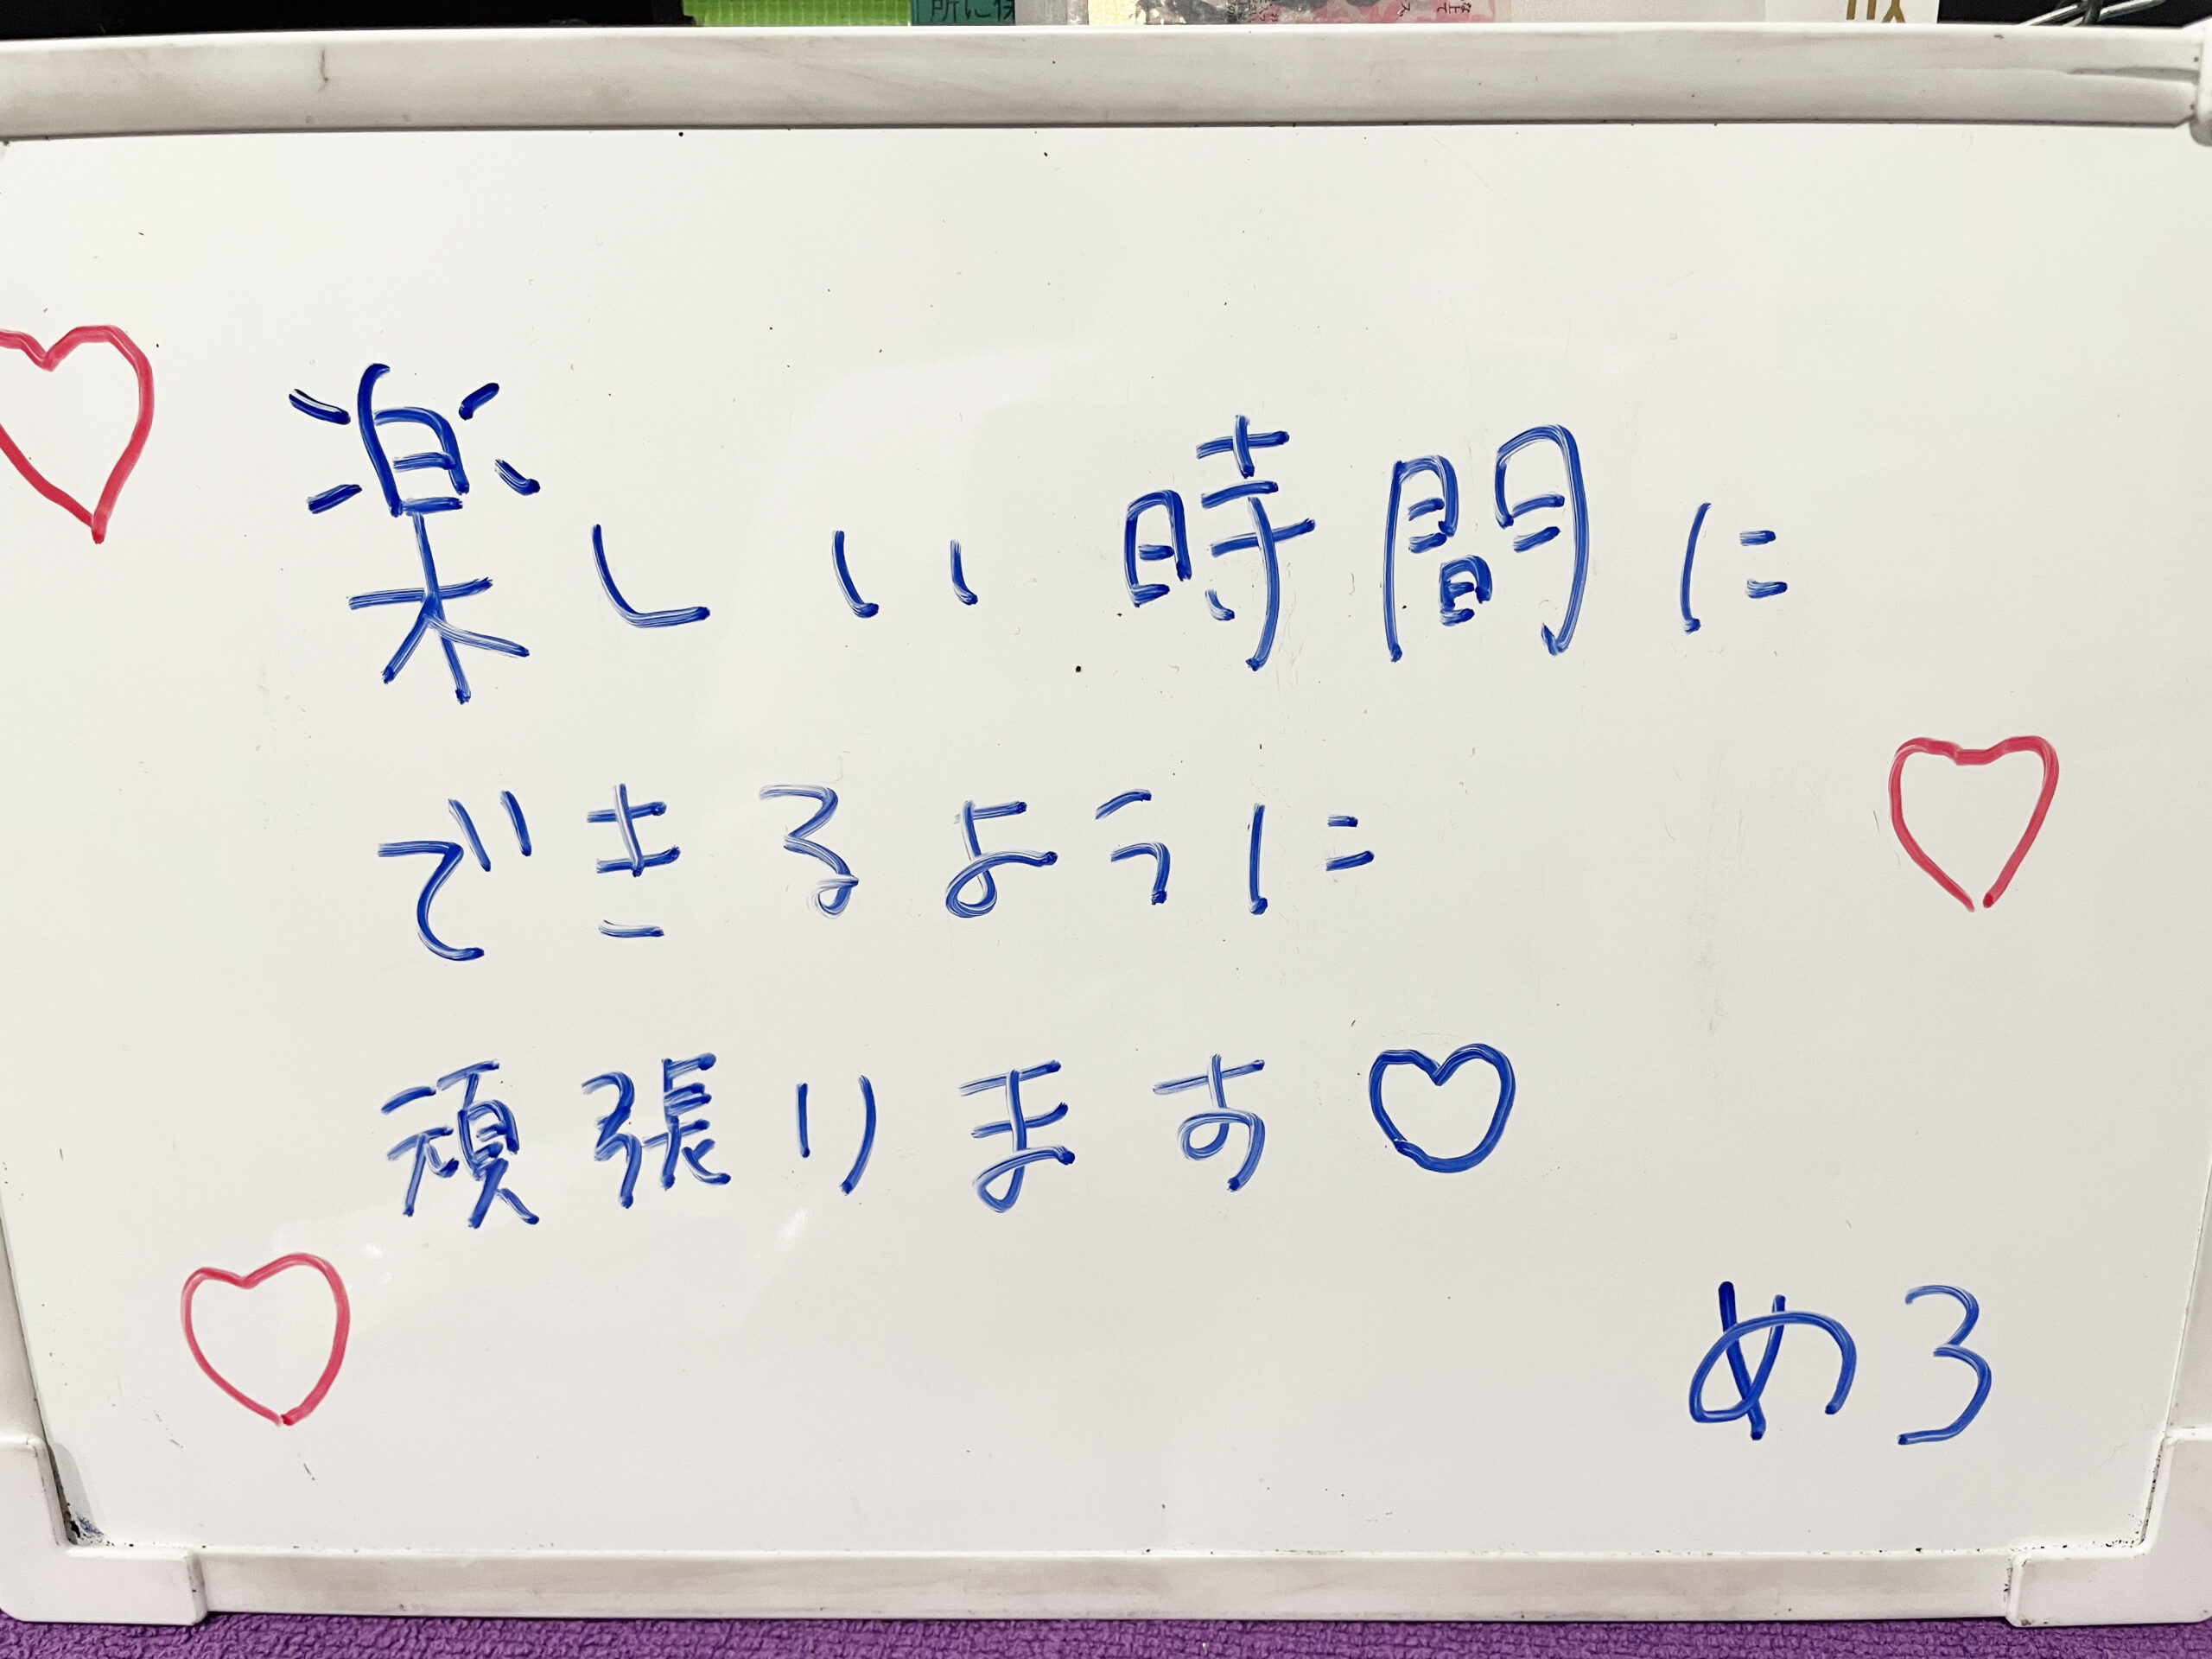 楽しい時間に
できるように
頑張ります♡
めろ